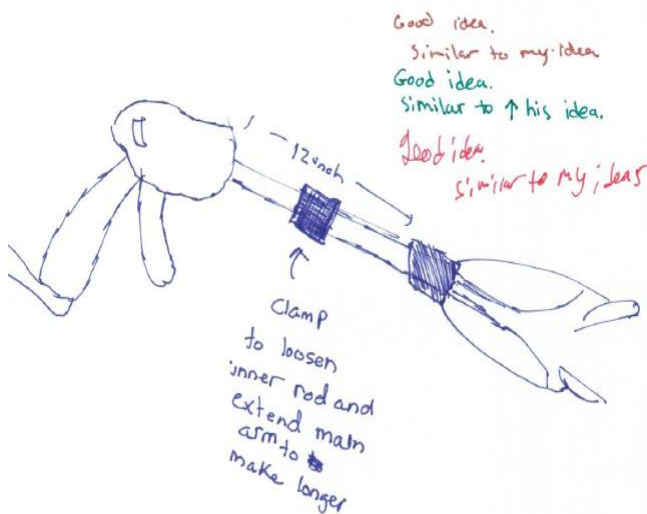 Good idea.
Similar to my idea
Good idea.
Similar to ↑ his idea.
Good idea.
similar to my ideas
12 inch
Clamp
to loosen
inner rod and
extend main
arm to
make longer